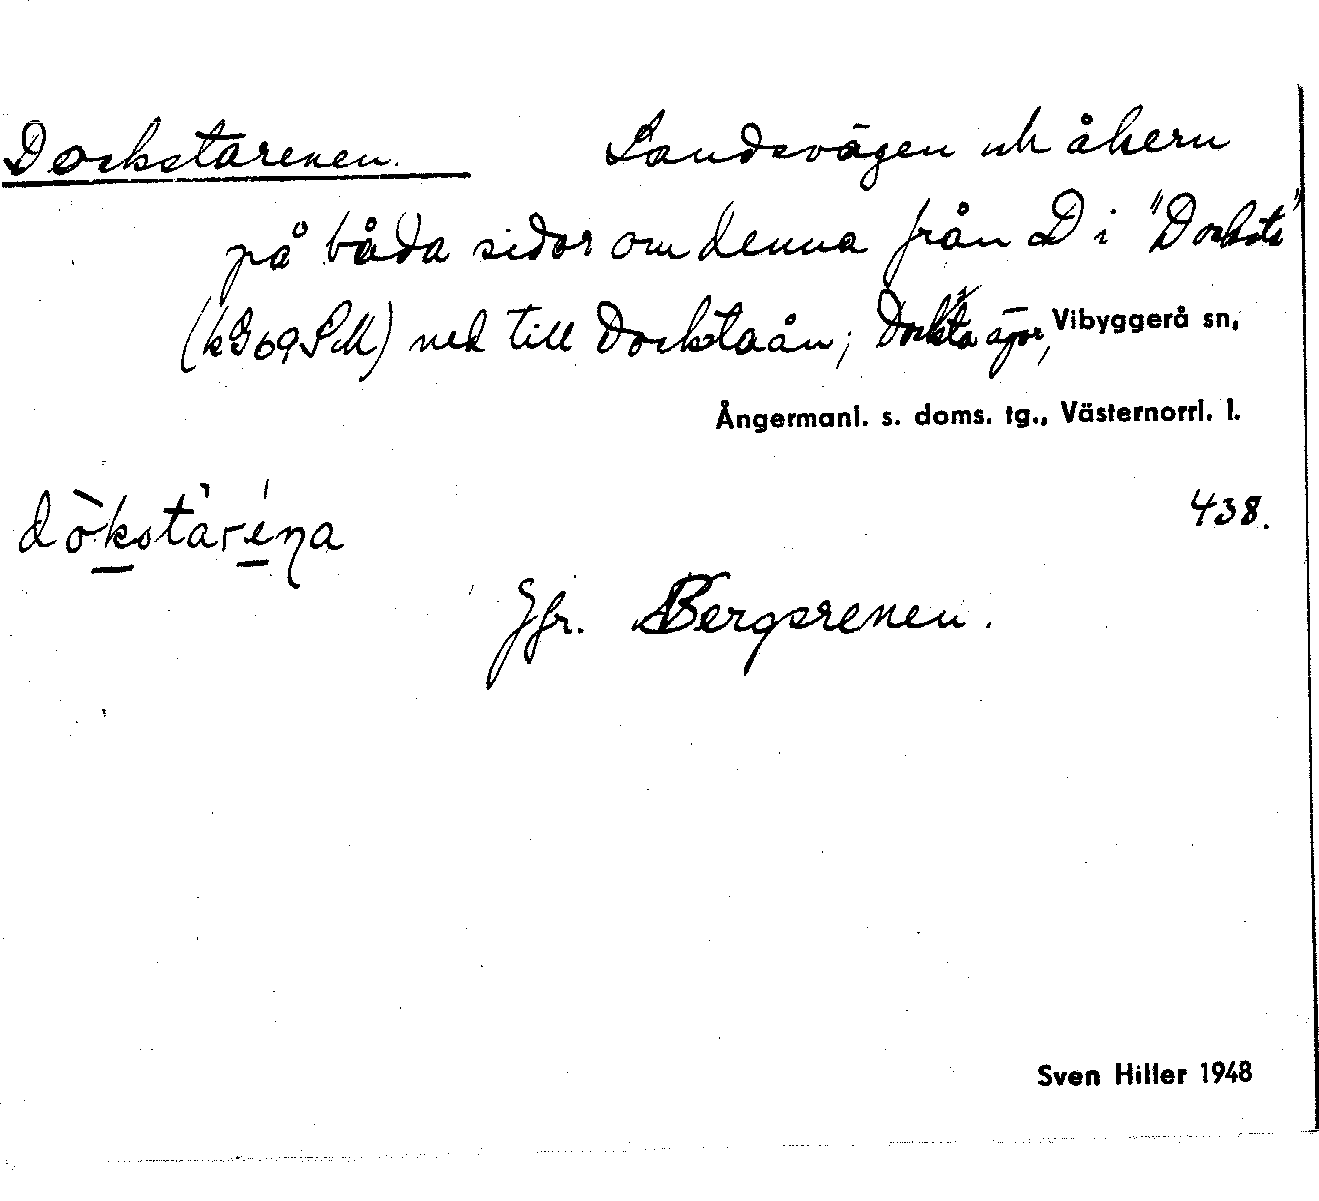 Dockstarenen. Landsvägen och åkern
på båda sidor om denna från D i "Docksta"
ned till Dockstaån; Docksta ägor, Vibyggerå sn,
Ångermanl. s. doms. tg., Västernorrl. l.
dòkstàréna 438.
Jfr. Bergsrenen.
Sven Hiller 1948